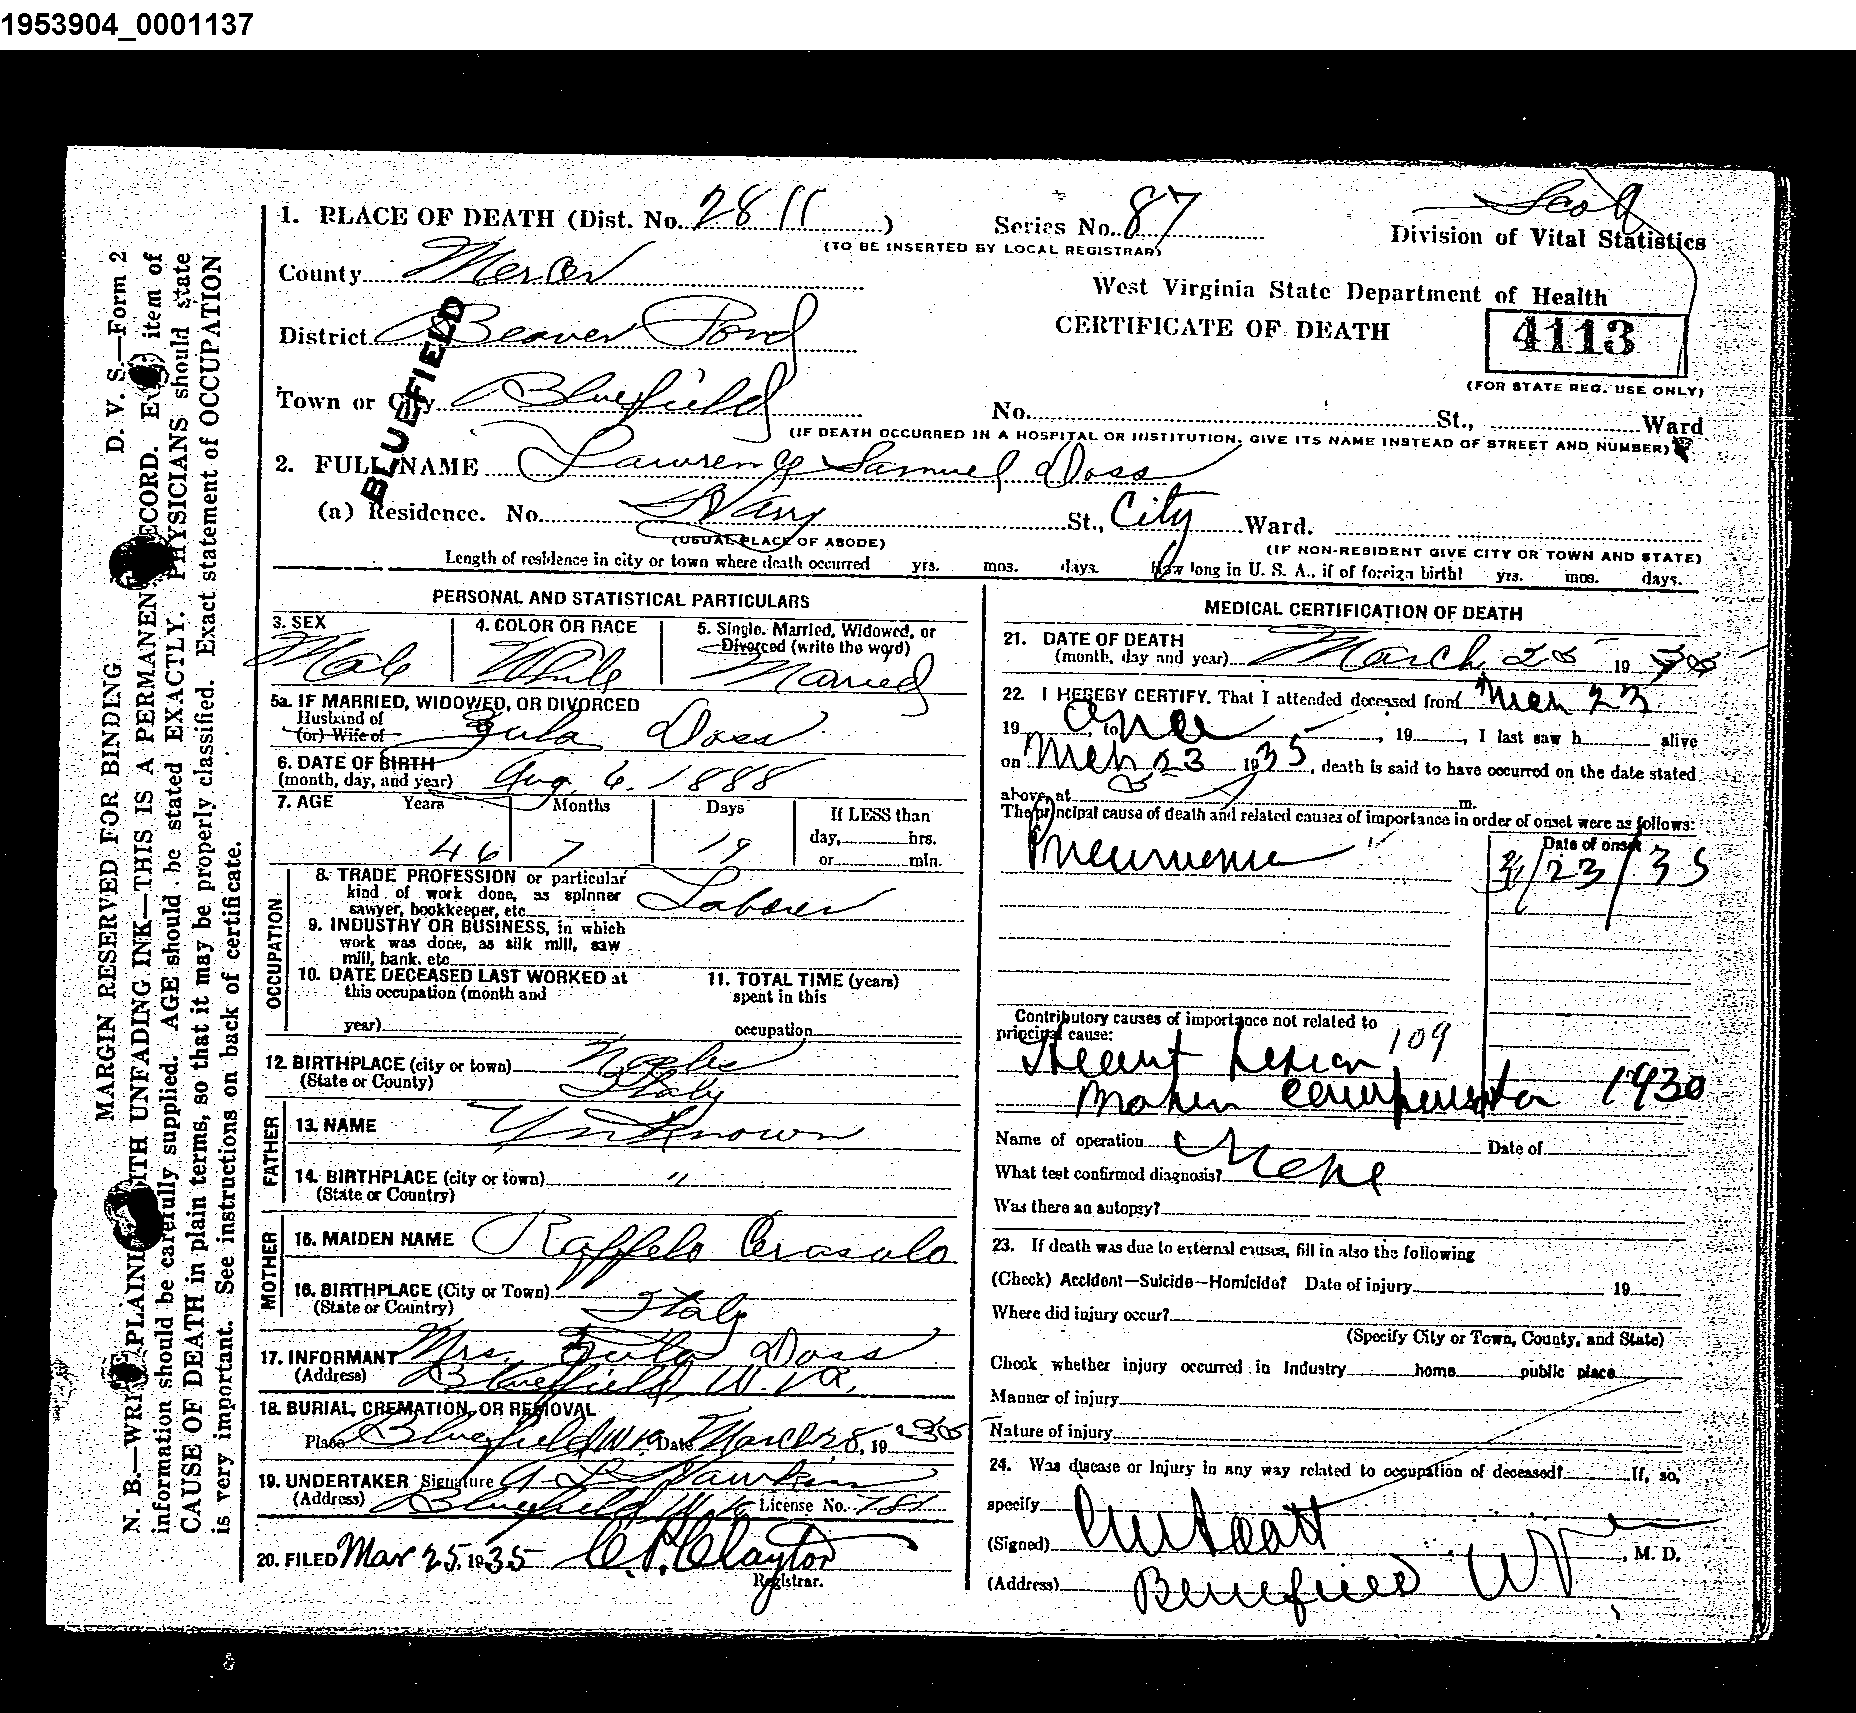 1953904_0001137
1. PLACE OF DEATH (Dist. No. 2811 )
Series No. 87
(TO BE INSERTED BY LOCAL REGISTRAR)
Division of Vital Statistics
County Mercer
West Virginia State Department of Health
CERTIFICATE OF DEATH
4113
(FOR STATE REG. USE ONLY)
District Beaver Pond
BLUEFIELD
Town or City Bluefield
No. St., Ward
(IF DEATH OCCURRED IN A HOSPITAL OR INSTITUTION, GIVE ITS NAME INSTEAD OF STREET AND NUMBER)
2. FULL NAME Lawrence Samuel Doss
(a) Residence. No. St., City Ward.
(USUAL PLACE OF ABODE)
(IF NON-RESIDENT GIVE CITY OR TOWN AND STATE)
Length of residence in city or town where death occurred yrs. mos. days. How long in U. S. A., if of foreign birth? yrs. mos. days.
PERSONAL AND STATISTICAL PARTICULARS
3. SEX
Male
4. COLOR OR RACE
White
5. Single, Married, Widowed, or
Divorced (write the word)
Married
5a. IF MARRIED, WIDOWED, OR DIVORCED
Husband of
(or) Wife of
Eula Doss
6. DATE OF BIRTH
(month, day, and year) Aug. 6. 1888
7. AGE Years Months Days
46 7 19
If LESS than
day, hrs.
or min.
OCCUPATION
8. TRADE PROFESSION or particular
kind of work done, as spinner
sawyer, bookkeeper, etc. Laborer
9. INDUSTRY OR BUSINESS, in which
work was done, as silk mill, saw
mill, bank, etc.
10. DATE DECEASED LAST WORKED at
this occupation (month and
year)
11. TOTAL TIME (years)
spent in this
occupation
12. BIRTHPLACE (city or town) Naples
(State or County) Italy
FATHER
13. NAME Unknown
14. BIRTHPLACE (city or town) "
(State or Country)
MOTHER
15. MAIDEN NAME Raffelo Cerasulo
16. BIRTHPLACE (City or Town)
(State or Country) Italy
17. INFORMANT Mrs. Eula Doss
(Address) Bluefield W. Va.
18. BURIAL, CREMATION, OR REMOVAL
Place Bluefield W Va Date March 28, 19 35
19. UNDERTAKER Signature A L Hawkins
(Address) Bluefield W Va License No. 181
20. FILED Mar 25, 1935 C. P. Clayton
Registrar.
MEDICAL CERTIFICATION OF DEATH
21. DATE OF DEATH
(month, day and year) March 25 19 35
22. I HEREBY CERTIFY, That I attended deceased from Mch 23
19 once to , 19 , I last saw h alive
on Mch 23 1935, death is said to have occurred on the date stated
above, at m.
The principal cause of death and related causes of importance in order of onset were as follows:
Date of onset
Pneumonia 3/23/35
Contributory causes of importance not related to
principal cause:
109
Heart Lesion
Broken Compensation 1930
Name of operation None Date of
What test confirmed diagnosis?
Was there an autopsy?
23. If death was due to external causes, fill in also the following
(Check) Accident—Suicide—Homicide? Date of injury 19
Where did injury occur?
(Specify City or Town, County, and State)
Check whether injury occurred in Industry home public place
Manner of injury
Nature of injury
24. Was disease or Injury in any way related to occupation of deceased? If, so,
specify
(Signed) , M. D.
(Address) Bluefield W Va
D. V. S.—Form 2
MARGIN RESERVED FOR BINDING
N. B.—WRITE PLAINLY WITH UNFADING INK—THIS IS A PERMANENT RECORD. Every item of
information should be carefully supplied. AGE should be stated EXACTLY. PHYSICIANS should state
CAUSE OF DEATH in plain terms, so that it may be properly classified. Exact statement of OCCUPATION
is very important. See instructions on back of certificate.